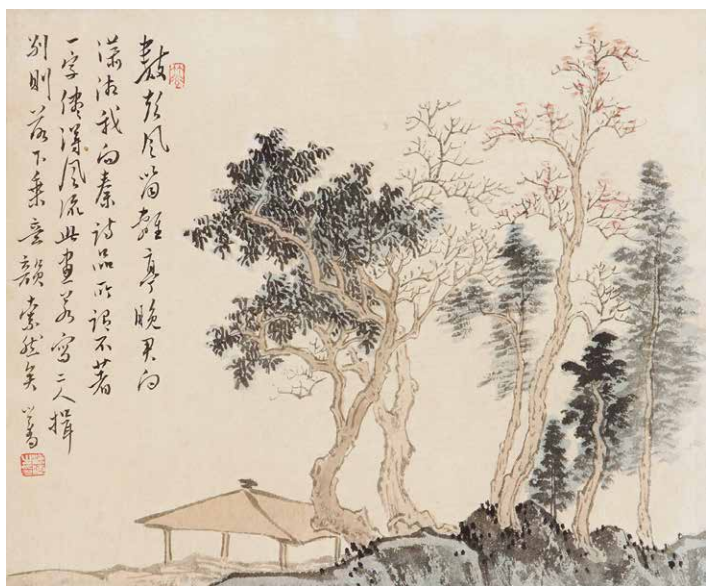 數聲風笛離亭晚君向
瀟湘我向秦詩品所謂不著
一字儘得風流此畫若寫二人揖
別則落下乘意韻索然矣 心畬